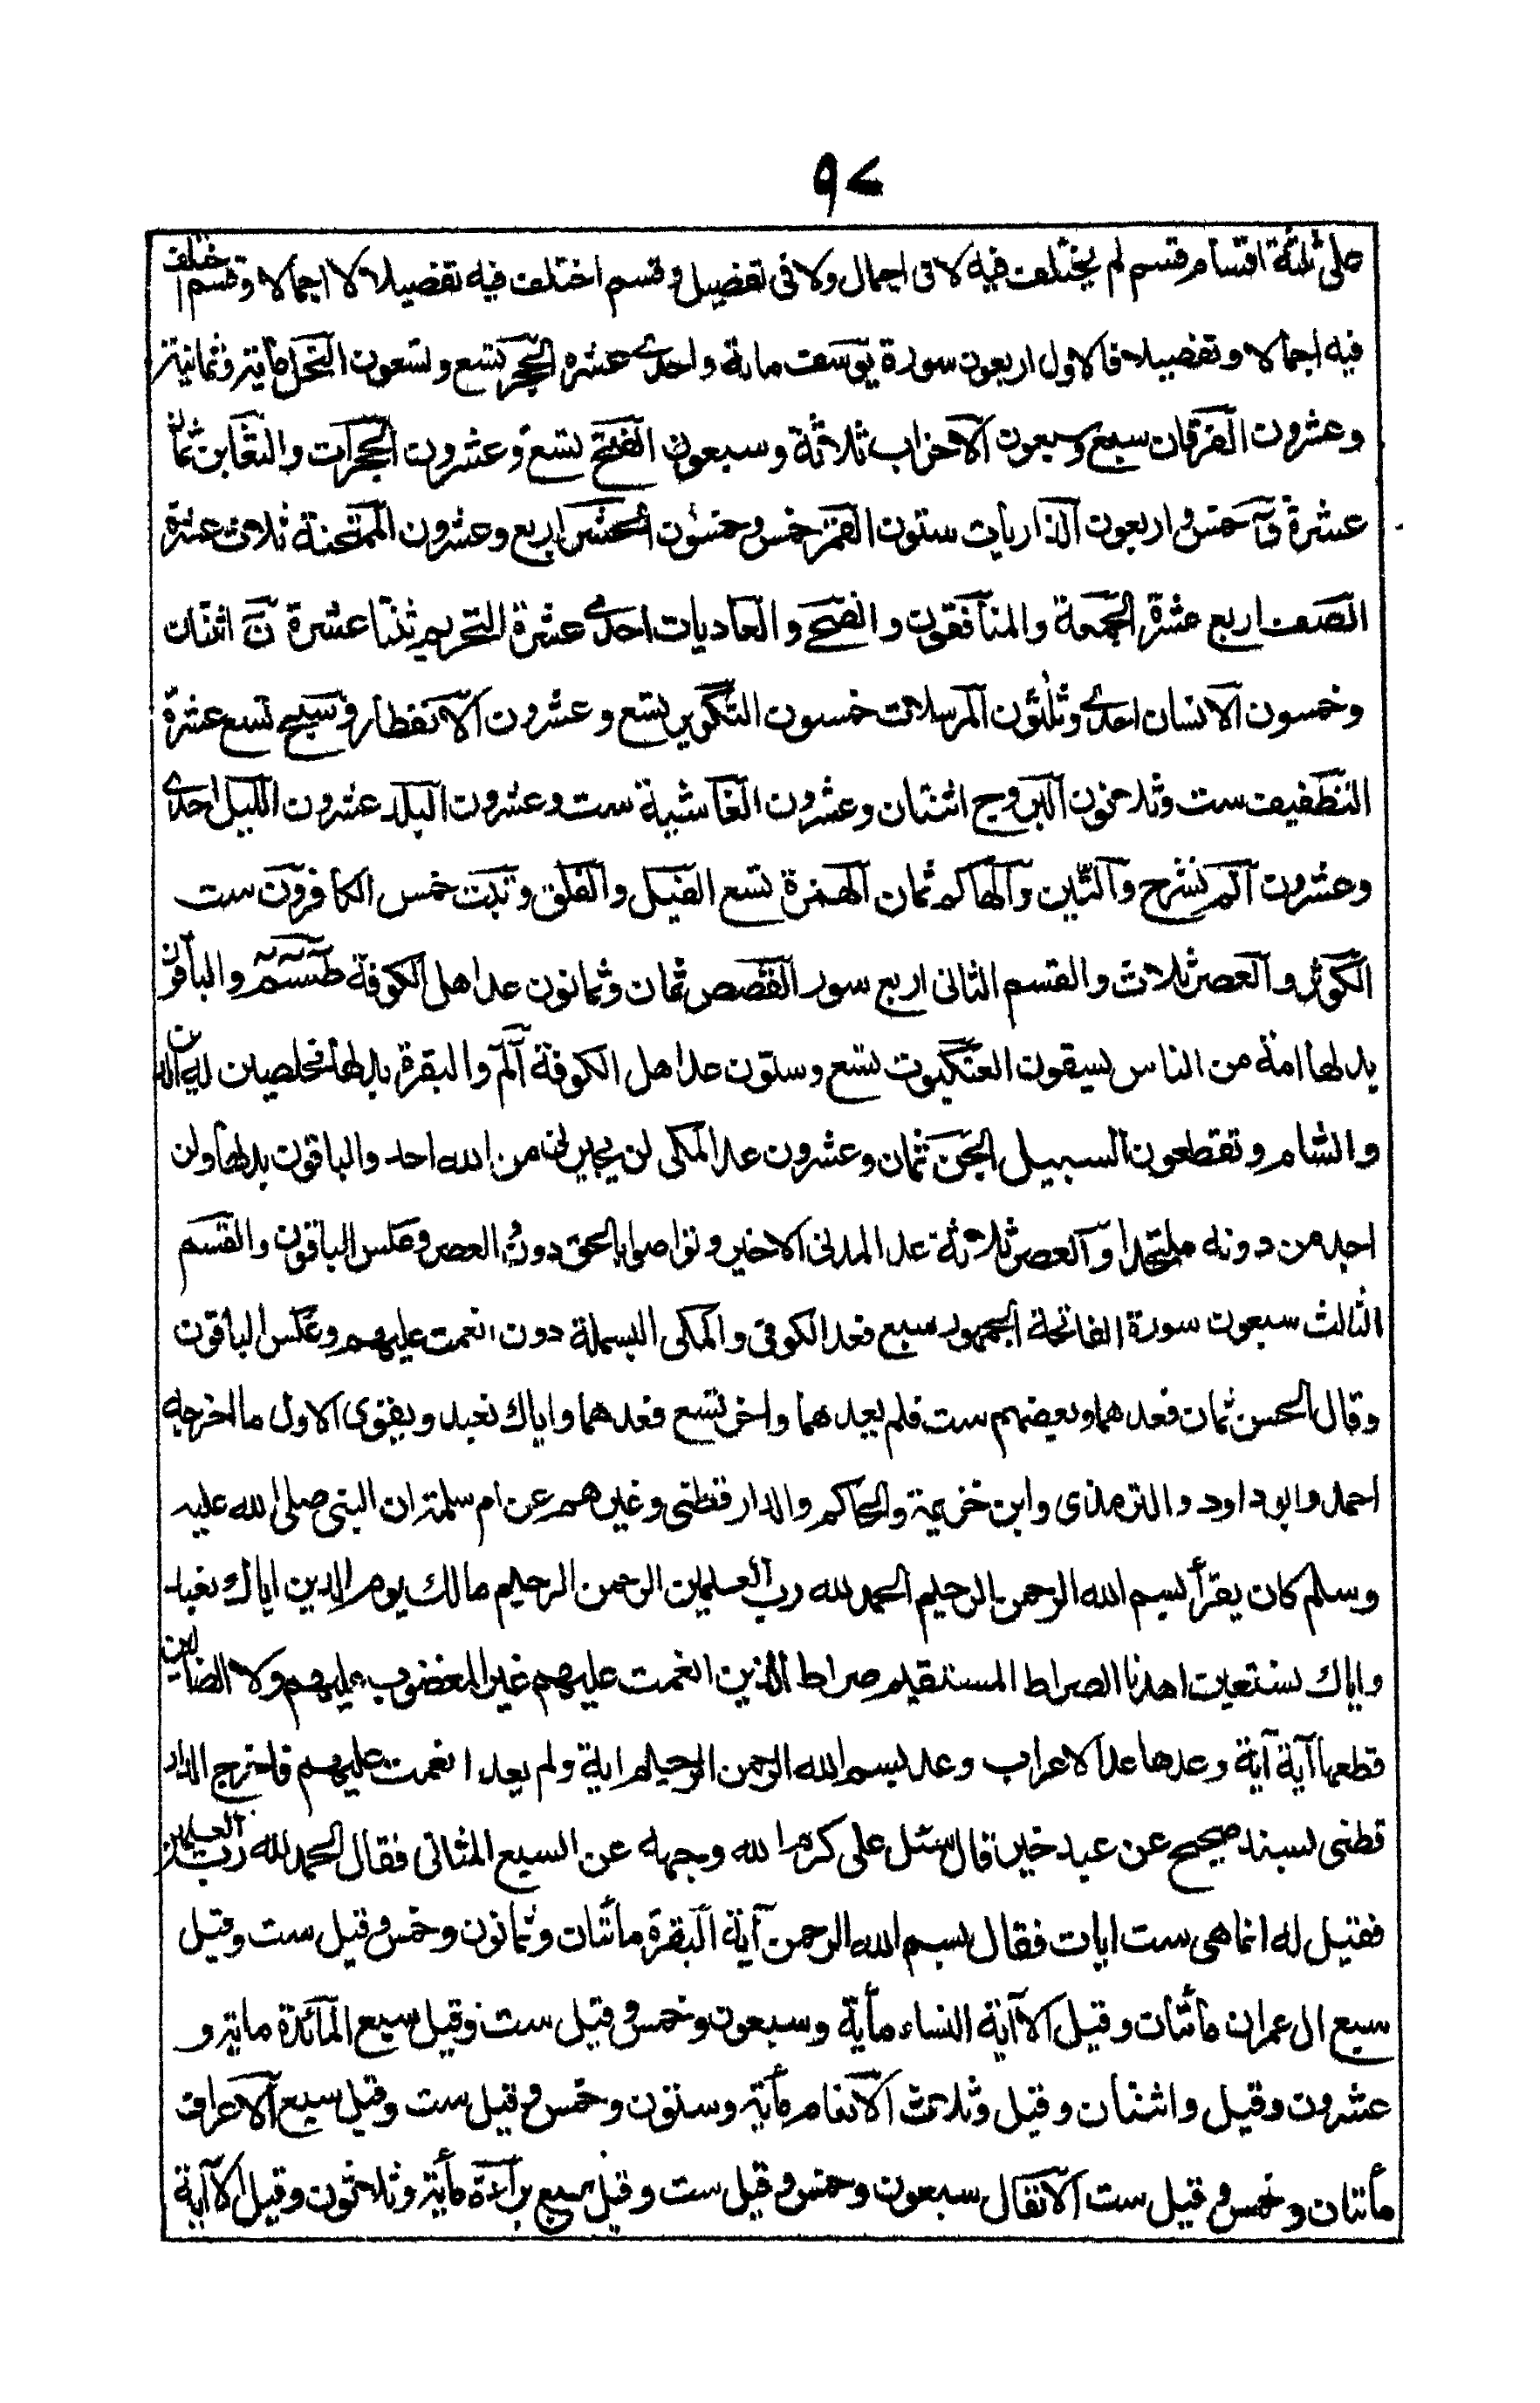 ٩٧
على ثلثة اقسام قسم لم يختلف فيه لا فى اجمال ولا فى تفضيل وقسم اختلف فيه تفضيلا لا اجمالا وقسم اختلف
فيه اجمالا وتفضيلا فالاول اربعون سورة يوسف مائة واحدى عشره الحجر تسع وتسعون النحل مأية وثمانية
وعشرون الفرقان سبع وسبعون الاحزاب ثلاثة وسبعون الفتح تسع وعشرون الحجرات والتغابن ثمان
عشرة ق خمس واربعون الذاريات ستون القمر خمس وخمسون الحشر اربع وعشرون الممتحنة ثلاث عشرة
الصف اربع عشرة الجمعة والمنافقون والضحى والعاديات احدى عشرة التحريم ثنتا عشرة ن اثنتان
وخمسون الانسان احدى وثلثون المرسلات خمسون التكوير تسع وعشرون الانفطار وسبح تسع عشرة
التطفيف ست وثلاثون البروج اثنتان وعشرون الغاشية ست وعشرون البلد عشرون الليل احدى
وعشرون الم نشرح والتين والهاكم ثمان الهمزة تسع الفيل والفلق وتبت خمس الكافرون ست
الكوثر والعصر ثلاث والقسم الثانى اربع سور القصص ثمان وثمانون عد اهل الكوفة طسم والباقون
بدلها امة من الناس يسقون العنكبوت تسع وستون عد اهل الكوفة الم والبقرة بدلها مخلصين له الدين
والشام وتقطعون السبيل الجن ثمان وعشرون عد المكى لن يجيرنى من الله احد والباقون بدلها ولن
اجد من دونه ملتحدا والعصر ثلاثة عد المدنى الاخير وتواصوا بالحق دون العصر وعكس الباقون والقسم
الثالث سبعون سورة الفاتحة الجمهور سبع فعد الكوفى والمكى البسملة دون انعمت عليهم وعكس الباقون
وقال الحسن ثمان فعدهما وبعضهم ست فلم يعدهما واخر تسع فعدهما واياك نعبد ويقوى الاول ما اخرجه
احمد وابو داود والترمذى وابن خزيمة والحاكم والدارقطنى وغيرهم عن ام سلمة ان النبى صلى الله عليه
وسلم كان يقرأ بسم الله الرحمن الرحيم الحمد لله رب العلمين الرحمن الرحيم مالك يوم الدين اياك نعبد
واياك نستعين اهدنا الصراط المستقيم صراط الذين انعمت عليهم غير المغضوب عليهم ولا الضالين
قطعها آية آية وعدها عد الاعراب وعد بسم الله الرحمن الرحيم اية ولم يعد انعمت عليهم فاخرج الدار
قطنى بسند صحيح عن عبد خير قال سئل على كرم الله وجهه عن السبع المثانى فقال الحمد لله رب العلمين
فقيل له انما هى ست ايات فقال بسم الله الرحمن آية البقرة مأتان وثمانون وخمس وقيل ست وقيل
سبع ال عمران مأتان وقيل الا آية النساء مأية وسبعون وخمس وقيل ست وقيل سبع المائدة مأية و
عشرون وقيل واثنتان وقيل وثلاث الانعام مأية وستون وخمس وقيل ست وقيل سبع الاعراف
مأتان وخمس وقيل ست الانفال سبعون وخمس وقيل ست وقيل سبع براءة مأية وثلاثون وقيل الا آية